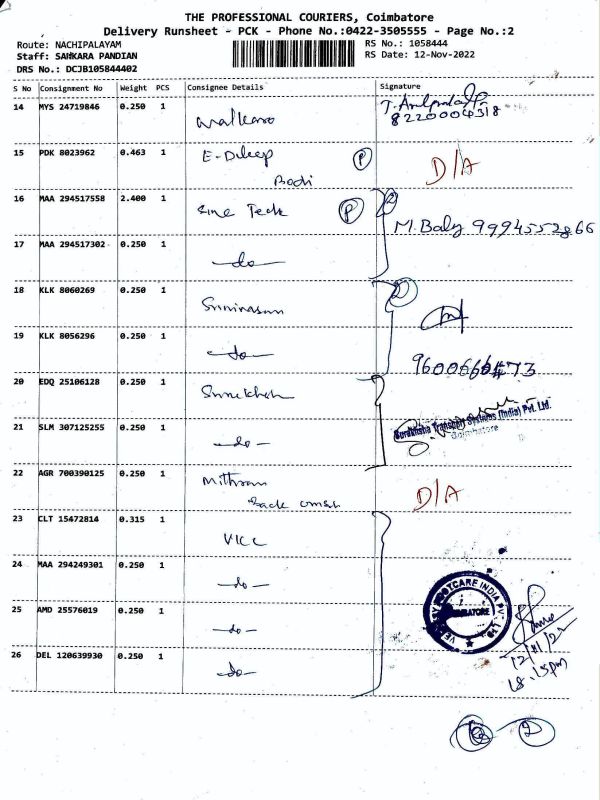 THE PROFESSIONAL COURIERS, Coimbatore
Delivery Runsheet - PCK - Phone No.:0422-3505555 - Page No.:2
Route: NACHIPALAYAM RS No.: 1058444
Staff: SANKARA PANDIAN RS Date: 12-Nov-2022
DRS No.: DCJB105844402
S No Consignment No Weight PCS Consignee Details Signature
14 MYS 24719846 0.250 1
8220004518
15 PDK 8023962 0.463 1 E-Dileep P D/A
Bodi
16 MAA 294517558 2.400 1 Sine Tech P 2
M. Baly 9994552866
17 MAA 294517302 0.250 1 -do-
18 KLK 8060269 0.250 1 Srinivasan 2
19 KLK 8056296 0.250 1 -do-
20 EDQ 25106128 0.250 1
Surakhsha Transport Systems (India) Pvt. Ltd.
Coimbatore
21 SLM 307125255 0.250 1 -do-
22 AGR 700390125 0.250 1 Mithram D/A
23 CLT 15472814 0.315 1 VKC
24 MAA 294249301 0.250 1 -do-
25 AMD 25576019 0.250 1 -do-
FOOTCARE INDIA PVT. LTD
COIMBATORE
12/11/22
26 DEL 120639930 0.250 1 -do-
2